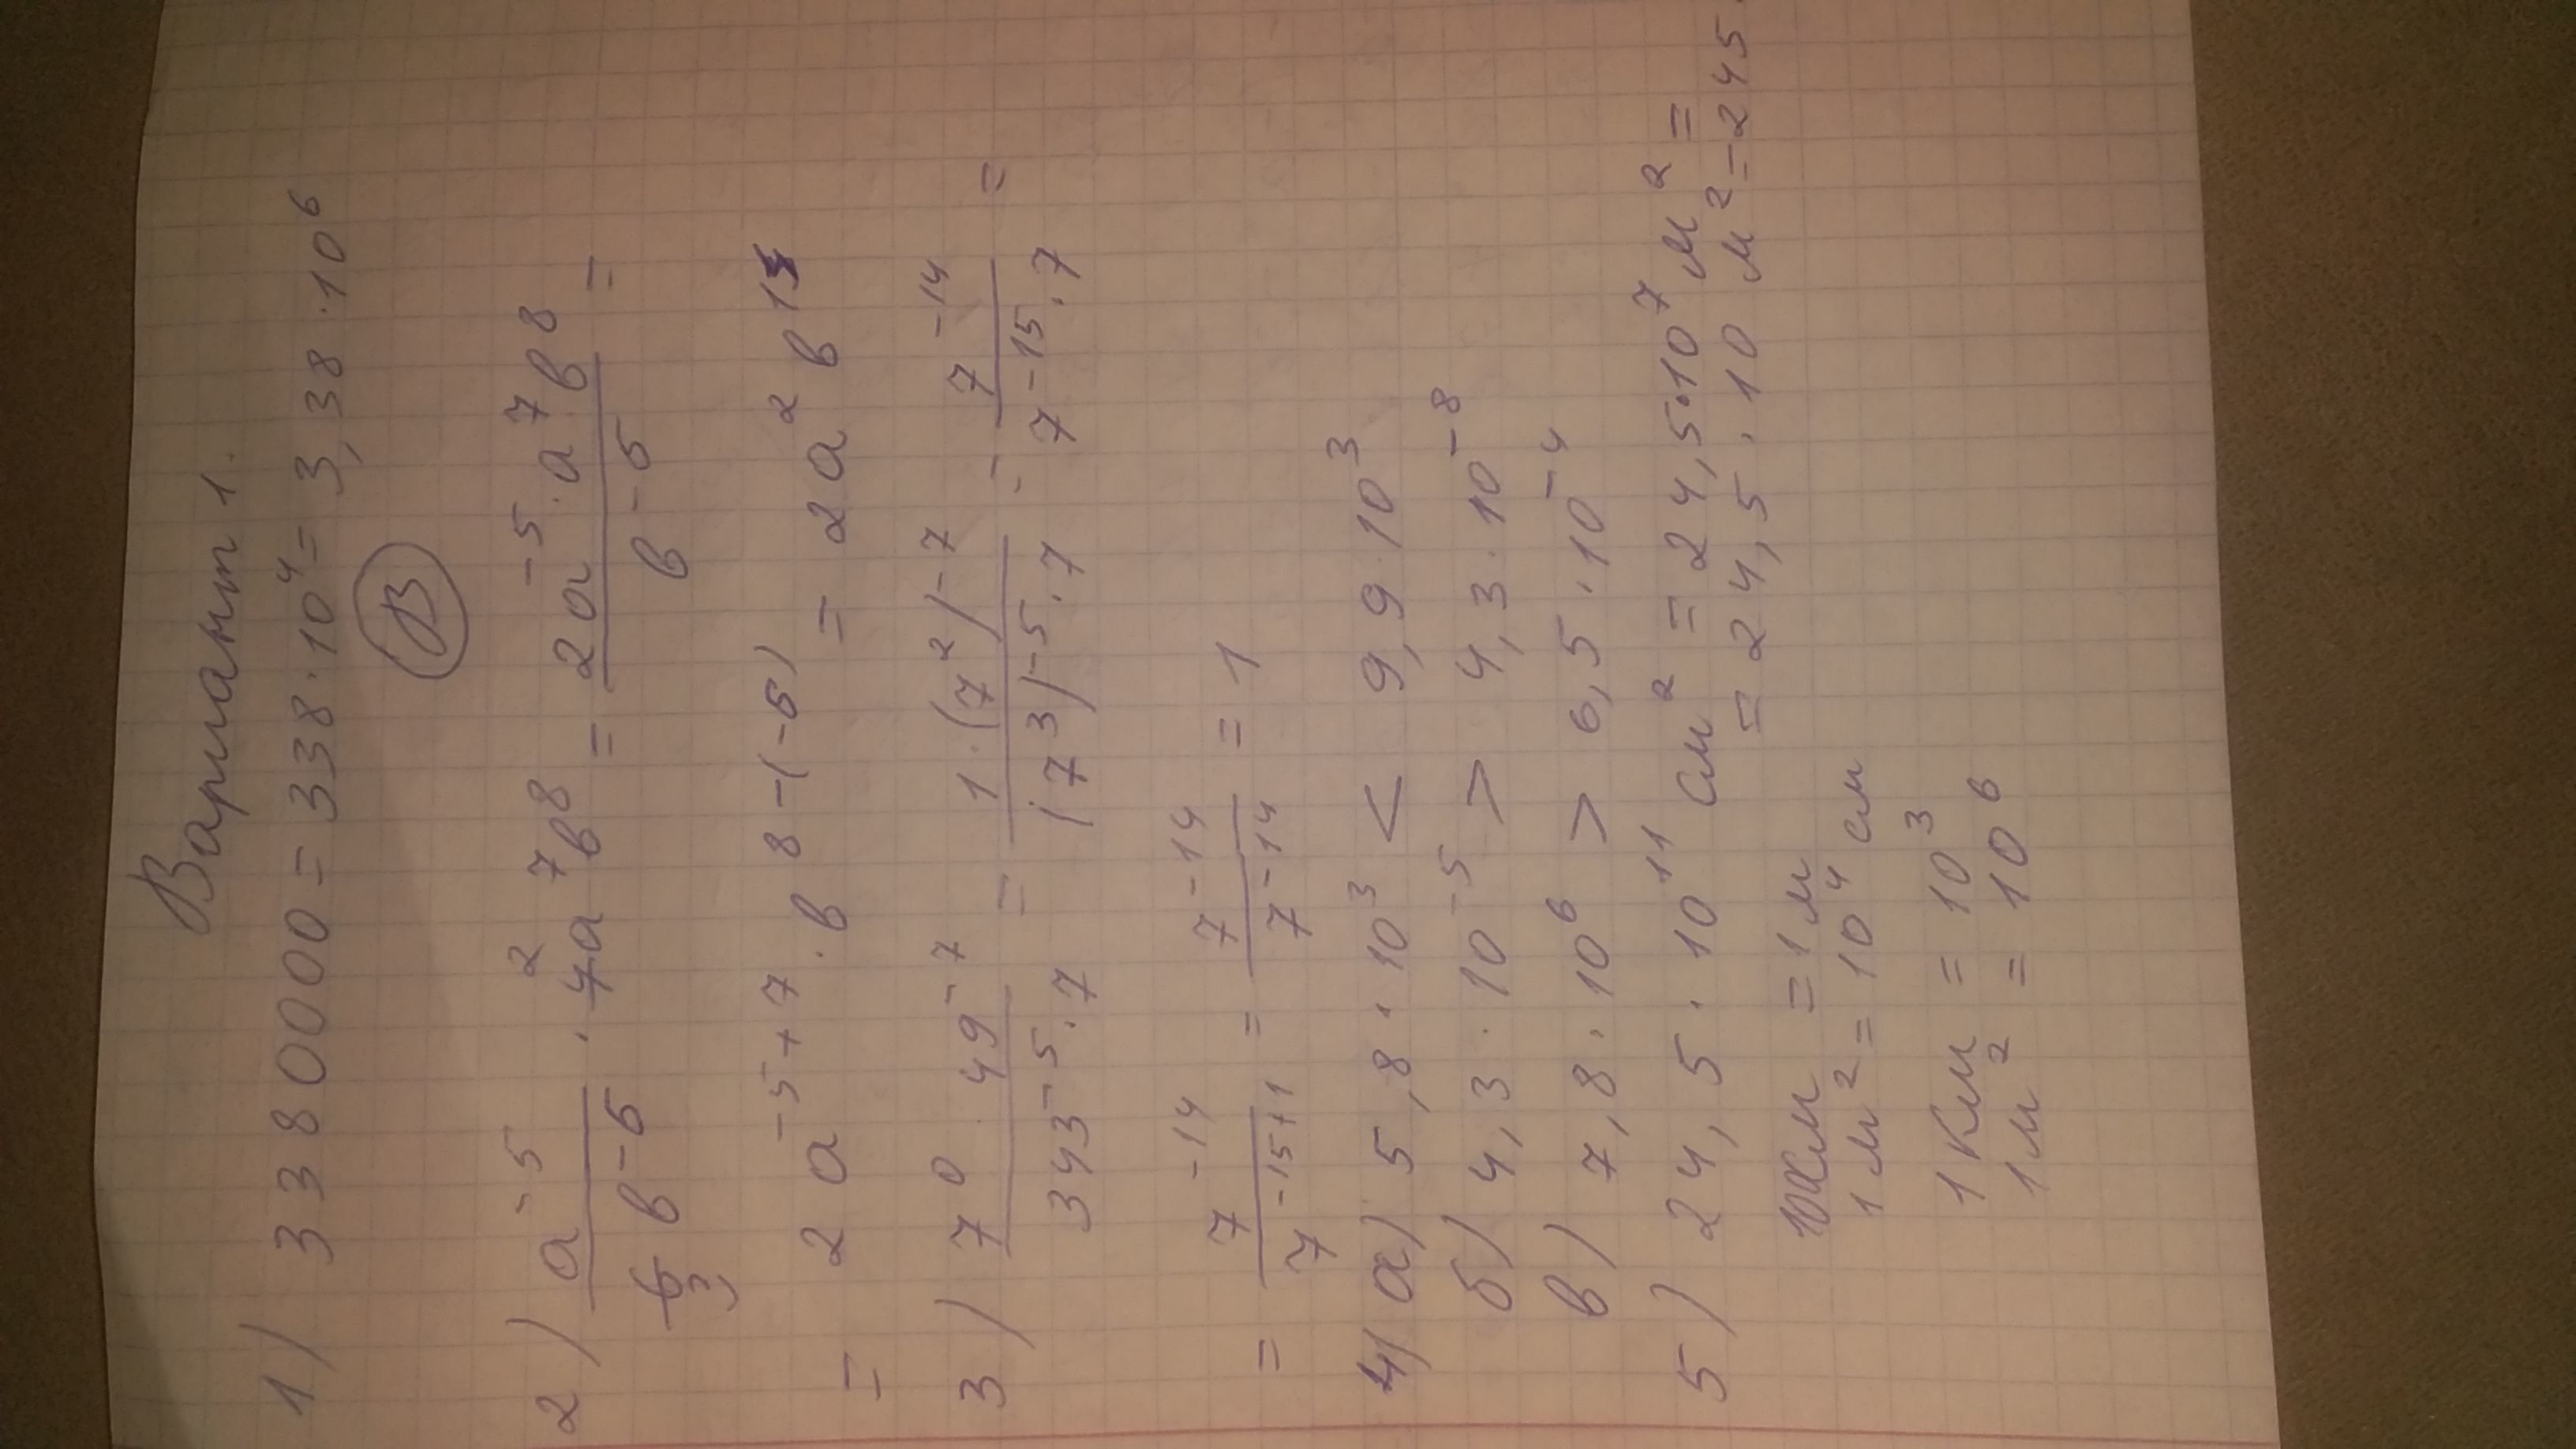 Вариант 1.
1) 3380000 = 338·10⁴ = 3,38·10⁶
В
2) a⁻⁵/6b⁻⁵ · 4a⁷b⁸ = 2a⁻⁵·a⁷b⁸/b⁻⁵ =
= 2a⁻⁵⁺⁷·b⁸⁻⁽⁻⁵⁾ = 2a²b¹³
3) 7⁰·49⁻⁷/343⁻⁵·7 = 1·(7²)⁻⁷/(7³)⁻⁵·7 = 7⁻¹⁴/7⁻¹⁵·7 =
= 7⁻¹⁴/7⁻¹⁵⁺¹ = 7⁻¹⁴/7⁻¹⁴ = 1
4) а) 5,8·10³ < 9,9·10³
б) 4,3·10⁻⁵ > 4,3·10⁻⁸
в) 7,8·10⁶ > 6,5·10⁻⁴
5) 24,5·10¹¹ см² = 24,5·10⁷ м² =
= 24,5·10 м² = 245
= 1м
1м² = 10⁴ см
1км = 10³
1м² = 10⁶